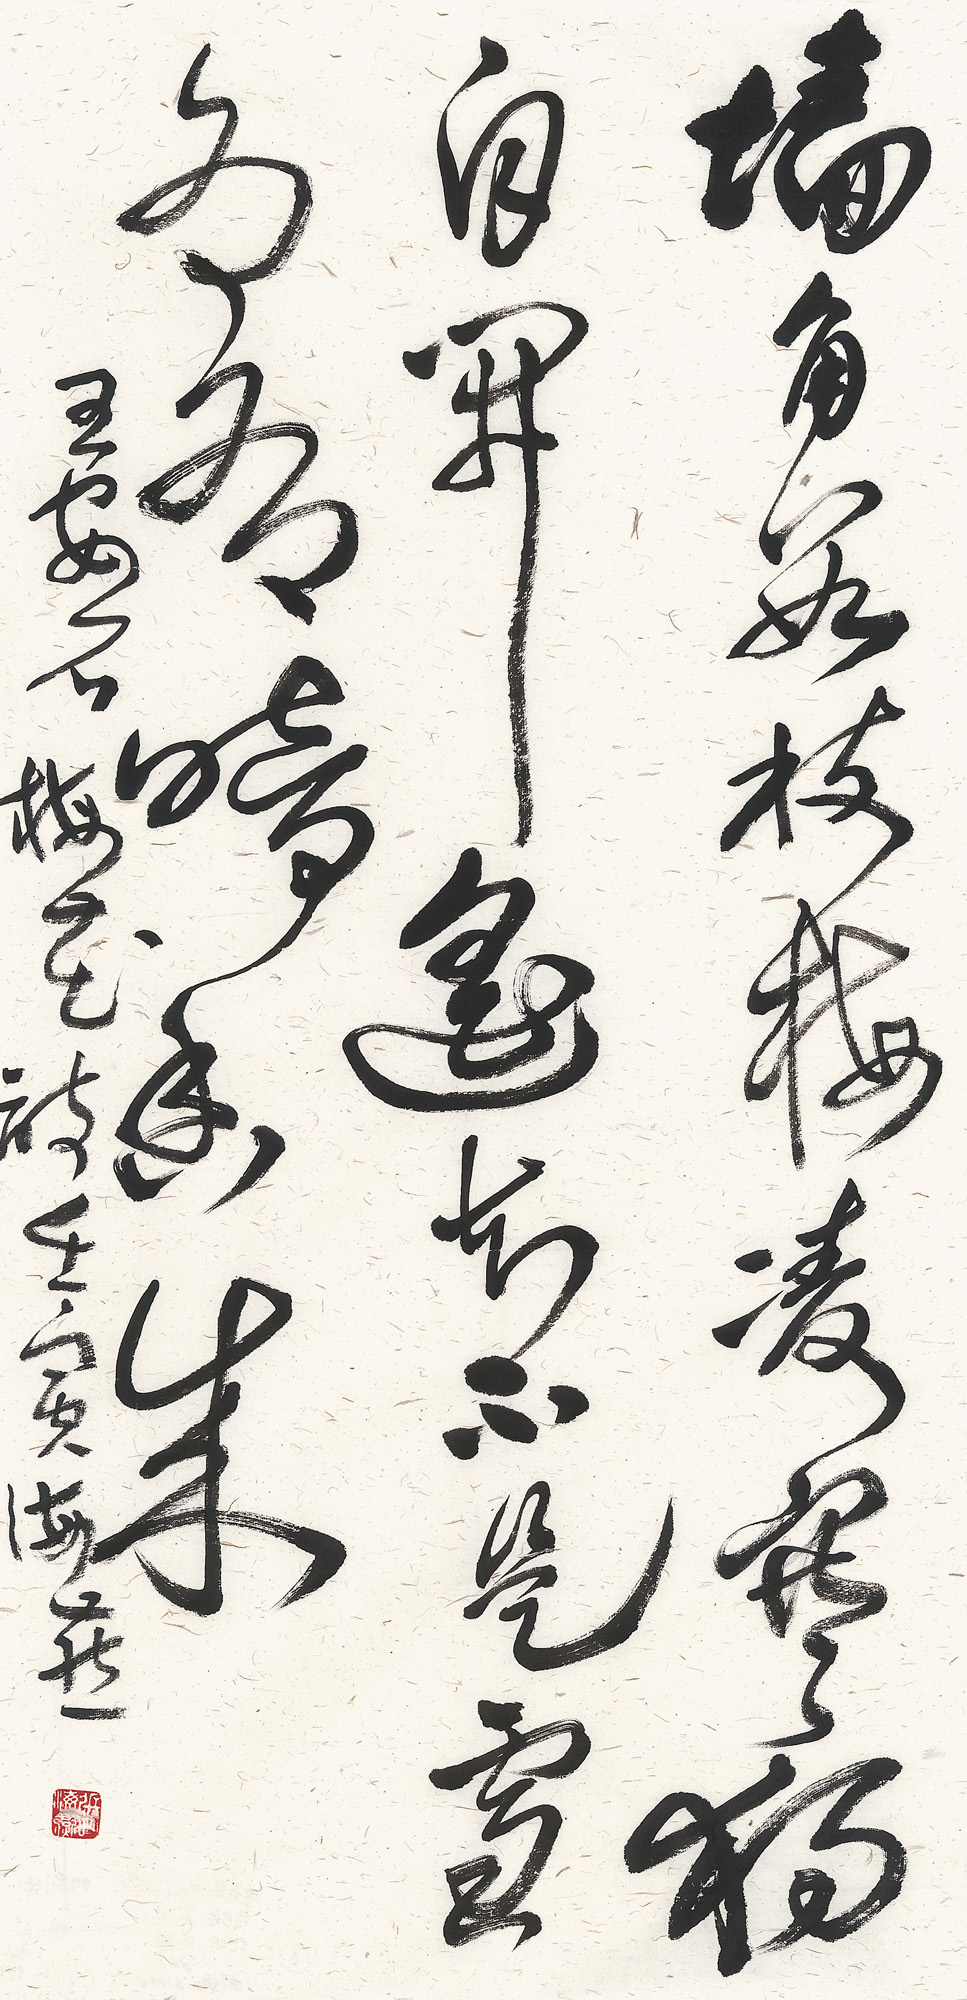 墙角数枝梅凌寒独
自開遥知不是雪
为有暗香来
王安石梅花诗壬寅海燕